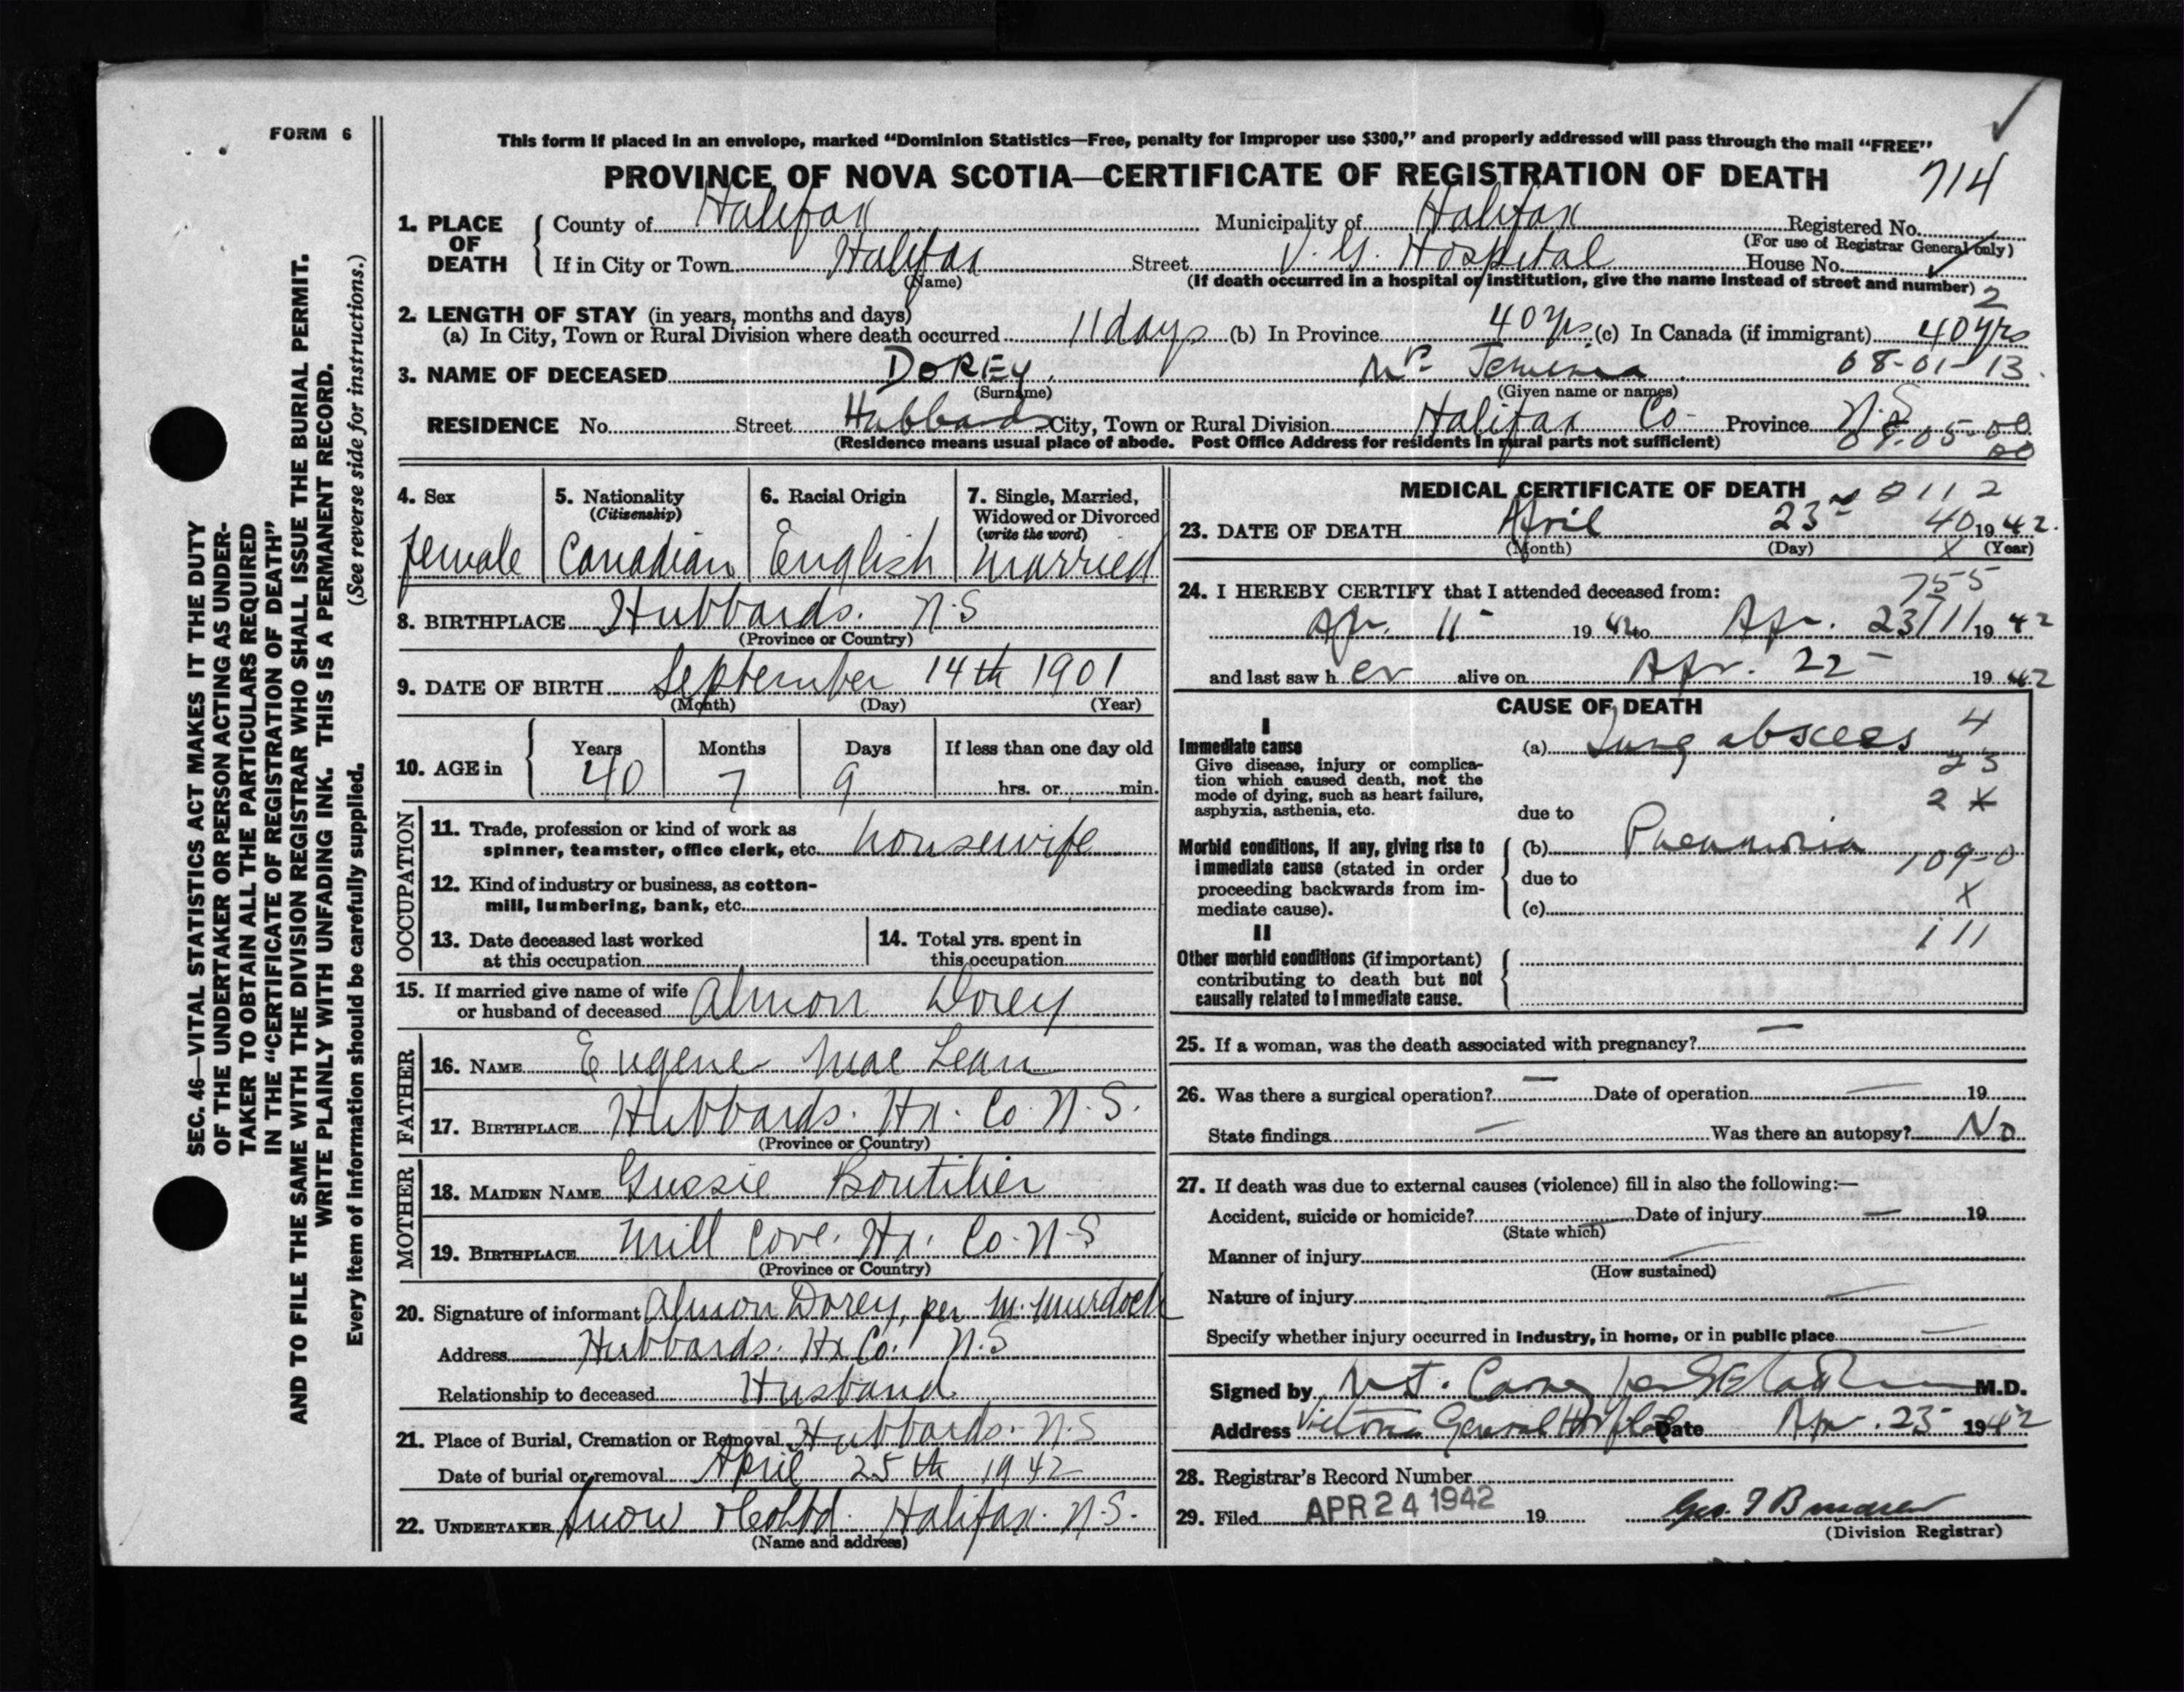 FORM 6
This form if placed in an envelope, marked “Dominion Statistics—Free, penalty for improper use $300,” and properly addressed will pass through the mail “FREE”
PROVINCE OF NOVA SCOTIA—CERTIFICATE OF REGISTRATION OF DEATH 714
1. PLACE OF DEATH
County of Halifax Municipality of Halifax Registered No.
(For use of Registrar General only)
If in City or Town Halifax Street V. G. Hospital House No.
(Name) (If death occurred in a hospital or institution, give the name instead of street and number) 2
2. LENGTH OF STAY (in years, months and days)
(a) In City, Town or Rural Division where death occurred 11 days (b) In Province 40 yrs (c) In Canada (if immigrant) 40 yrs
3. NAME OF DECEASED DOREY, Mrs Jemima 08-01-13
(Surname) (Given name or names)
RESIDENCE No. Street Hubbards City, Town or Rural Division Halifax Co- Province N.S
(Residence means usual place of abode. Post Office Address for residents in rural parts not sufficient)
4. Sex
female
5. Nationality
(Citizenship)
Canadian
6. Racial Origin
English
7. Single, Married,
Widowed or Divorced
(write the word)
married
8. BIRTHPLACE Hubbards. N.S
(Province or Country)
9. DATE OF BIRTH September 14th 1901
(Month) (Day) (Year)
10. AGE in
Years Months Days If less than one day old
40 7 9 hrs. or min.
OCCUPATION
11. Trade, profession or kind of work as
spinner, teamster, office clerk, etc. housewife
12. Kind of industry or business, as cotton-
mill, lumbering, bank, etc.
13. Date deceased last worked
at this occupation
14. Total yrs. spent in
this occupation
15. If married give name of wife
or husband of deceased Almon Dorey
FATHER
16. NAME Eugene Mac Lean
17. BIRTHPLACE Hubbards. Hx. Co. N.S.
(Province or Country)
MOTHER
18. MAIDEN NAME Gussie Boutilier
19. BIRTHPLACE Mill Cove. Hx. Co. N-S
(Province or Country)
20. Signature of informant Almon Dorey, per M. Murdock
Address Hubbards. Hx Co. N.S
Relationship to deceased Husband.
21. Place of Burial, Cremation or Removal Hubbards. N.S
Date of burial or removal April 25th 1942
22. UNDERTAKER Snow & Co Ltd. Halifax. N.S.
(Name and address)
MEDICAL CERTIFICATE OF DEATH
23. DATE OF DEATH April 23 40 1942.
(Month) (Day) (Year)
24. I HEREBY CERTIFY that I attended deceased from: 755
Apr. 11 1942 to Apr. 23/11 1942
and last saw her alive on Apr. 22 1942
CAUSE OF DEATH
I
Immediate cause
Give disease, injury or complica-
tion which caused death, not the
mode of dying, such as heart failure,
asphyxia, asthenia, etc.
(a) Lung abscess 4
23
2 X
due to
Morbid conditions, if any, giving rise to
immediate cause (stated in order
proceeding backwards from im-
mediate cause).
(b) Pneumonia 109-0
due to
X
(c)
II
111
Other morbid conditions (if important)
contributing to death but not
causally related to immediate cause.
25. If a woman, was the death associated with pregnancy? —
26. Was there a surgical operation? — Date of operation — 19
State findings — Was there an autopsy? No
27. If death was due to external causes (violence) fill in also the following:—
Accident, suicide or homicide? Date of injury — 19
(State which)
Manner of injury —
(How sustained)
Nature of injury —
Specify whether injury occurred in industry, in home, or in public place —
Signed by M.D.
Address Victoria General Hospital Date Apr. 23 1942
28. Registrar's Record Number
29. Filed APR 24 1942 19
(Division Registrar)
SEC. 46—VITAL STATISTICS ACT MAKES IT THE DUTY
OF THE UNDERTAKER OR PERSON ACTING AS UNDER-
TAKER TO OBTAIN ALL THE PARTICULARS REQUIRED
IN THE “CERTIFICATE OF REGISTRATION OF DEATH”
AND TO FILE THE SAME WITH THE DIVISION REGISTRAR WHO SHALL ISSUE THE BURIAL PERMIT.
WRITE PLAINLY WITH UNFADING INK. THIS IS A PERMANENT RECORD.
Every item of information should be carefully supplied. (See reverse side for instructions.)